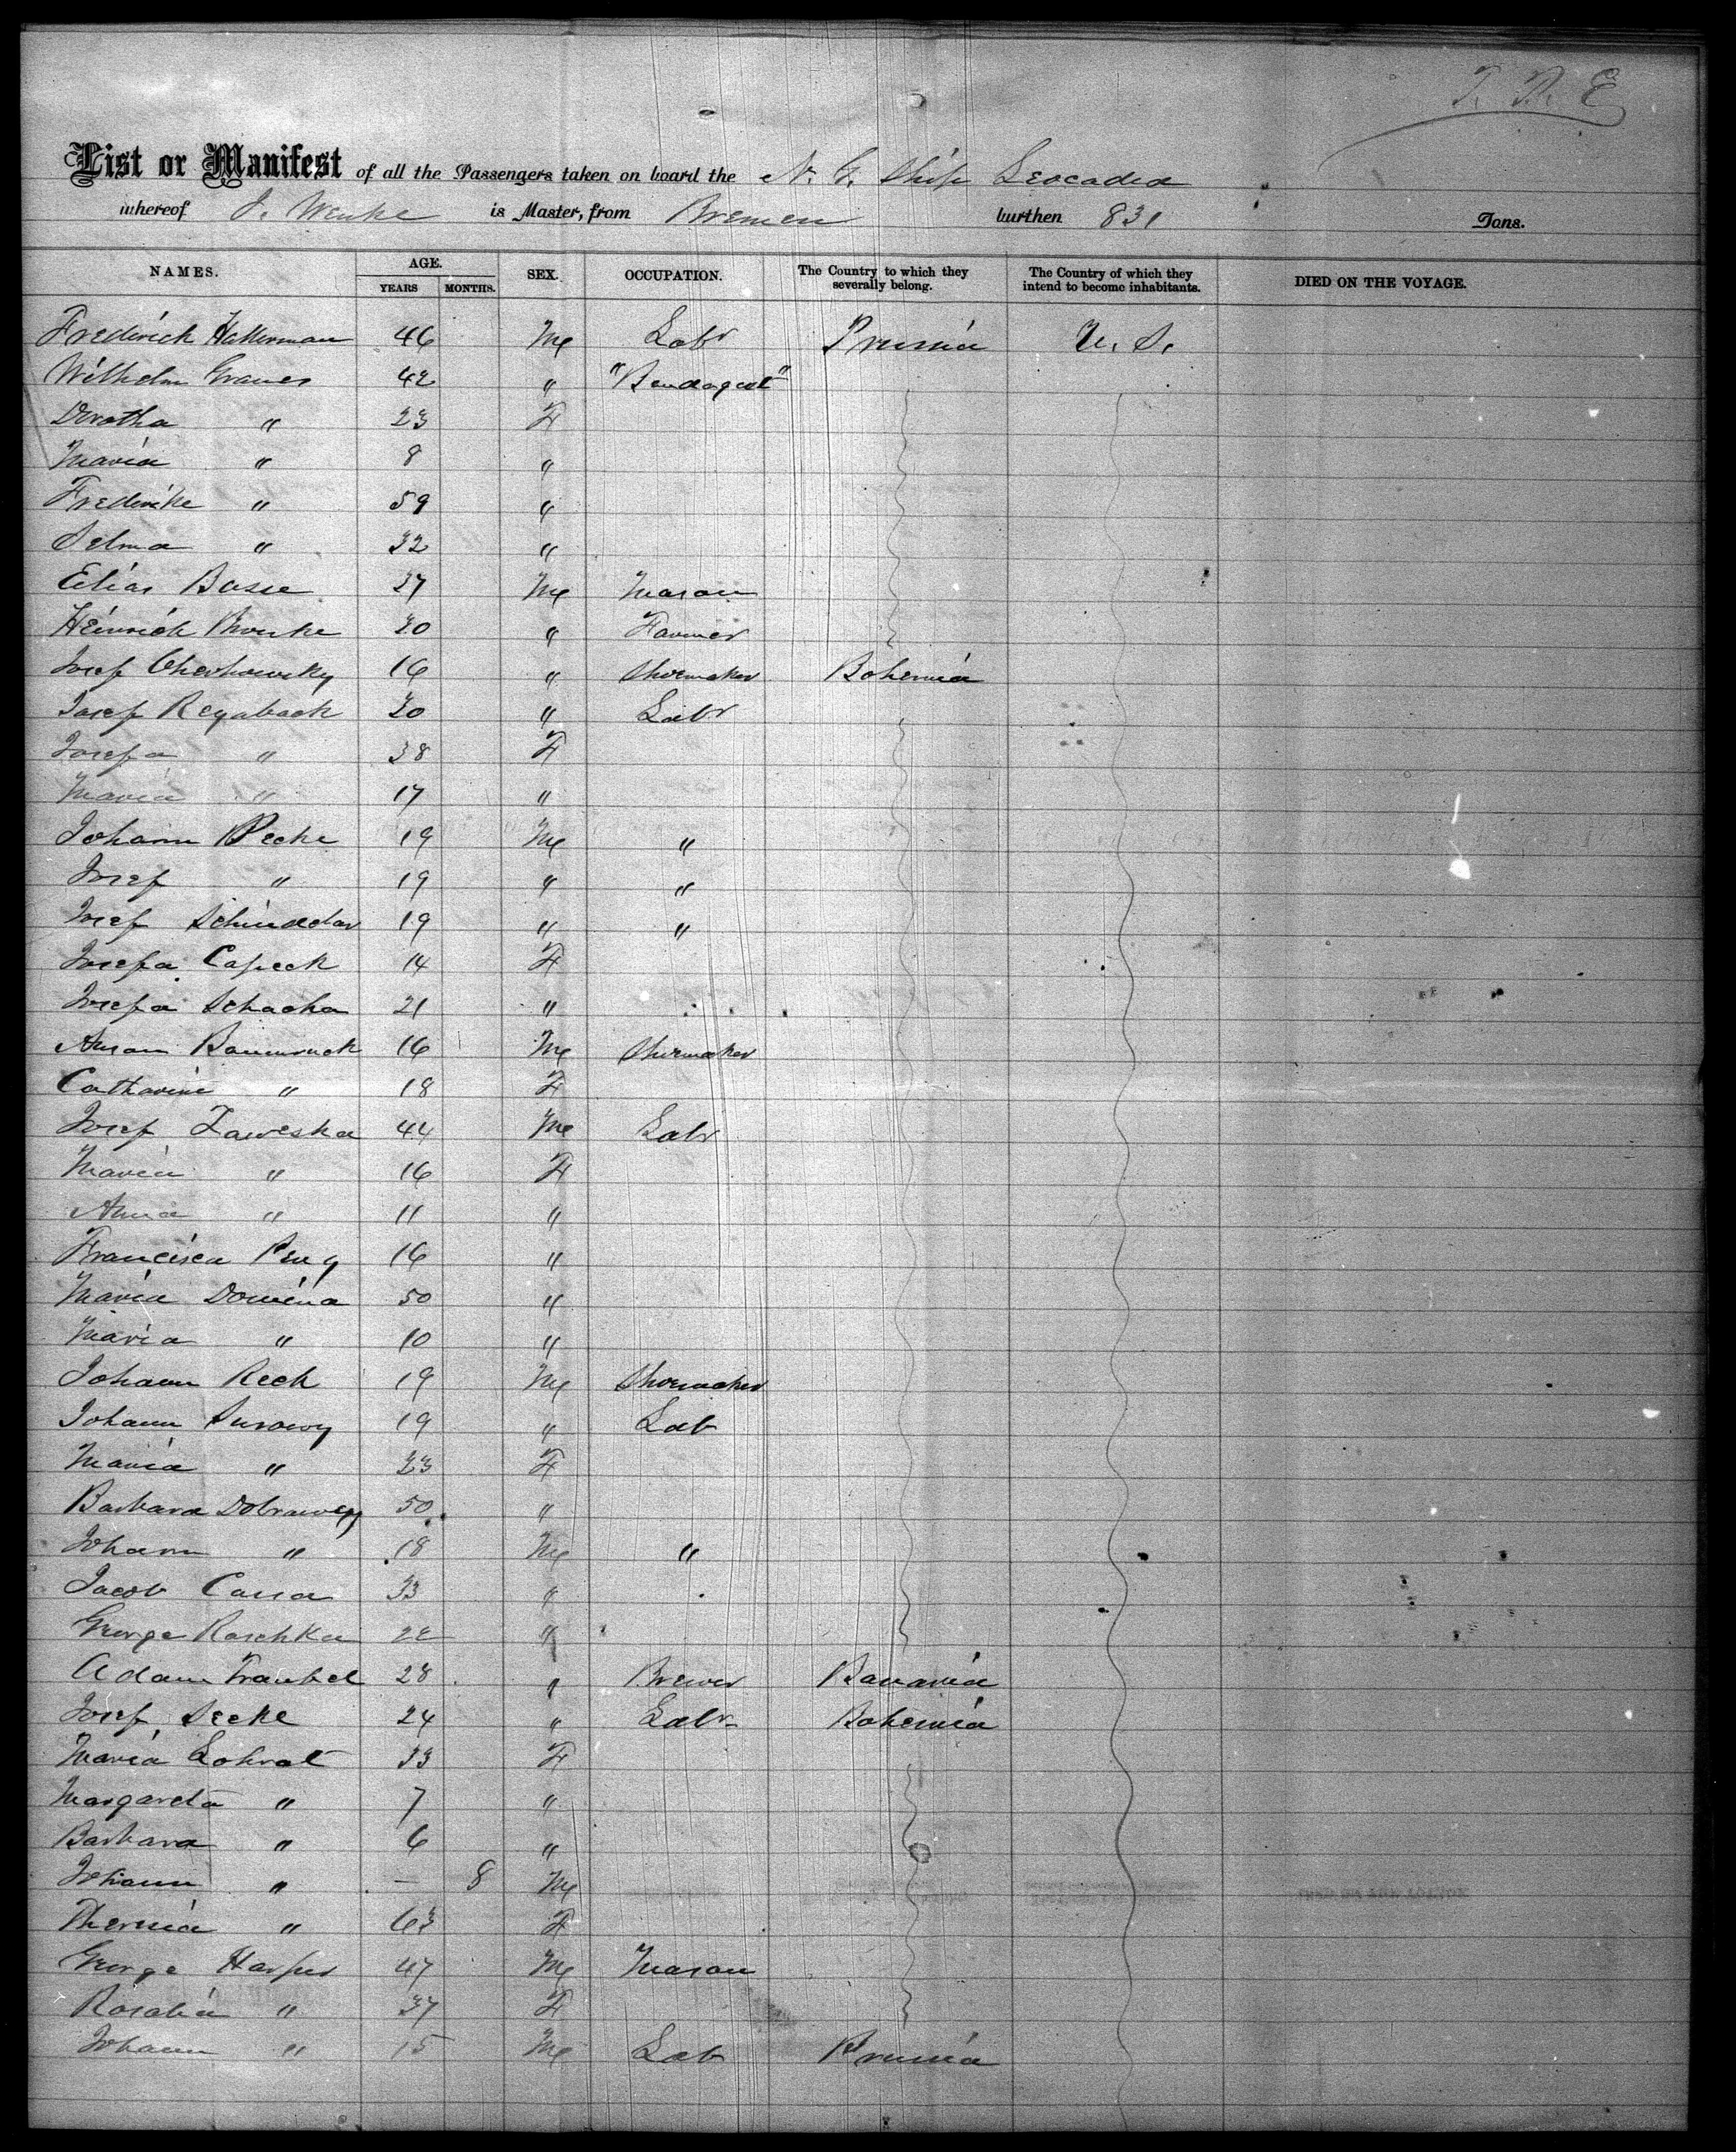 T. P. E
List or Manifest of all the Passengers taken on board the N. G. Ship Leocadia
whereof J. Wenke is Master, from Bremen burthen 831 Tons.
NAMES. AGE. YEARS MONTHS. SEX. OCCUPATION. The Country to which they severally belong. The Country of which they intend to become inhabitants. DIED ON THE VOYAGE.
Frederick Hallerman 46 M Labr Prussia U. S.
Wilhelm Graues 42 " "Bandagist"
Dorotha " 23 F
Maria " 8 "
Frederike " 59 "
Selma " 32 "
Elias Busse 27 M Mason
Heinrich 30 " Farmer
Josef 16 " Shoemaker Bohemia
Josef Regaback 30 " Labr
Josefa " 38 F
Maria " 17 "
Johann Pecke 19 M "
Josef " 19 " "
Josef Schineder 19 " "
Josefa Capeck 14 F
Josefa Schacha 21 "
16 M Shoemaker
Catharine " 18 F
Josef Zaweska 44 M Labr
Maria " 16 F
Anna " 11 "
Francisca 16 "
Maria Domina 50 "
Maria " 10 "
Johann Reck 19 M Shoemaker
Johann Surowy 19 " Lab
Maria " 23 F
Barbara 50 "
Johann " 18 M "
Jacob Cassa 33 "
George Raschka 22 "
Adam Traubel 28 " Brewer Bavaria
Josef Secke 24 " Labr Bohemia
Maria Lokrat 33 F
Margareta " 7 "
Barbara " 6 "
Johann " — 8 M
Theresia " 63 F
George Harper 47 M Mason
Rosalia " 37 F
Johann " 15 M Lab Prussia